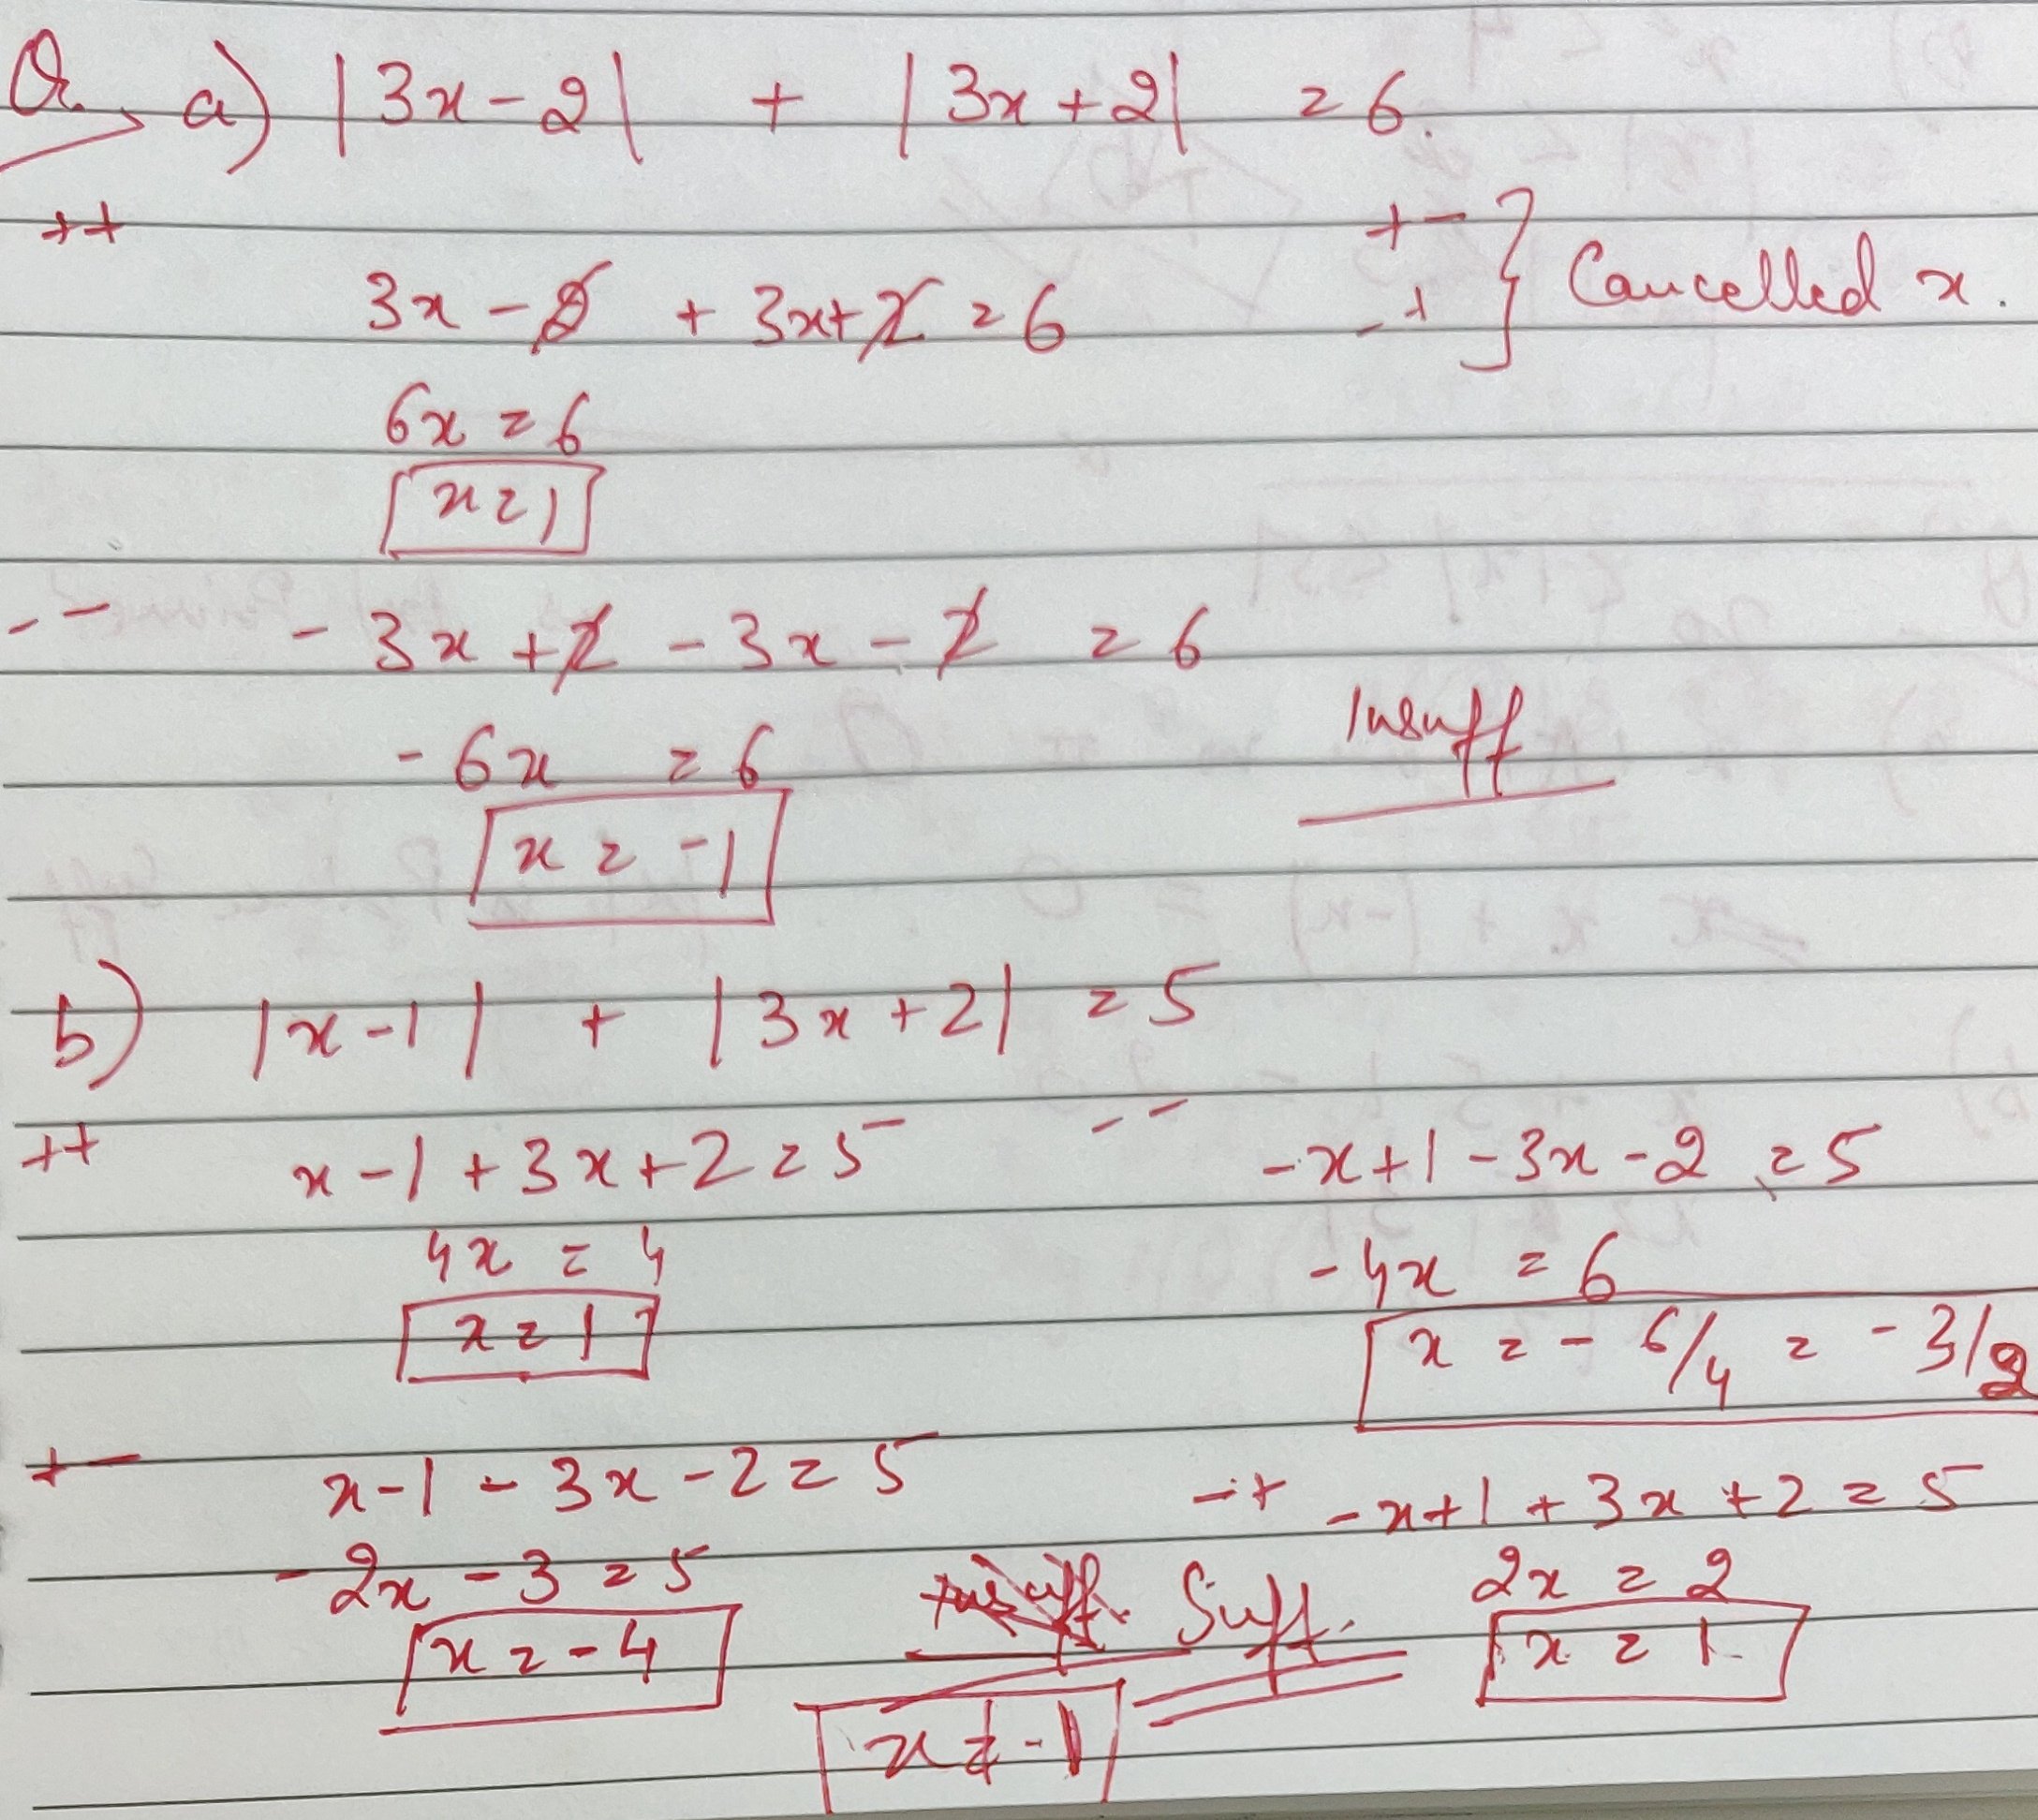 Q. a) |3x-2| + |3x+2| = 6.
++
+ -
- + } Cancelled x.
3x - 2 + 3x + 2 = 6
6x = 6
x = 1
- - - 3x + 2 - 3x - 2 = 6
Insuff
- 6x = 6
x = -1
b) |x-1| + |3x+2| = 5
++ x - 1 + 3x + 2 = 5
4x = 4
x = 1
- - -x+1-3x-2 = 5
-4x = 6
x = - 6/4 = - 3/2
+ - x-1 - 3x - 2 = 5
- 2x - 3 = 5
x = - 4
- + -x+1 + 3x + 2 = 5
2x = 2
x = 1
Insuff. Suff.
x ≠ -1